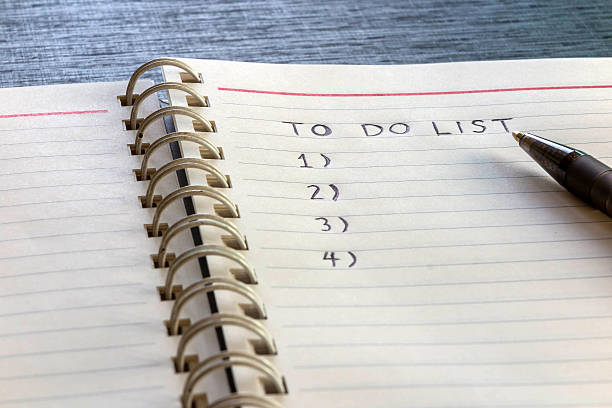 TO DO LIST
1)
2)
3)
4)